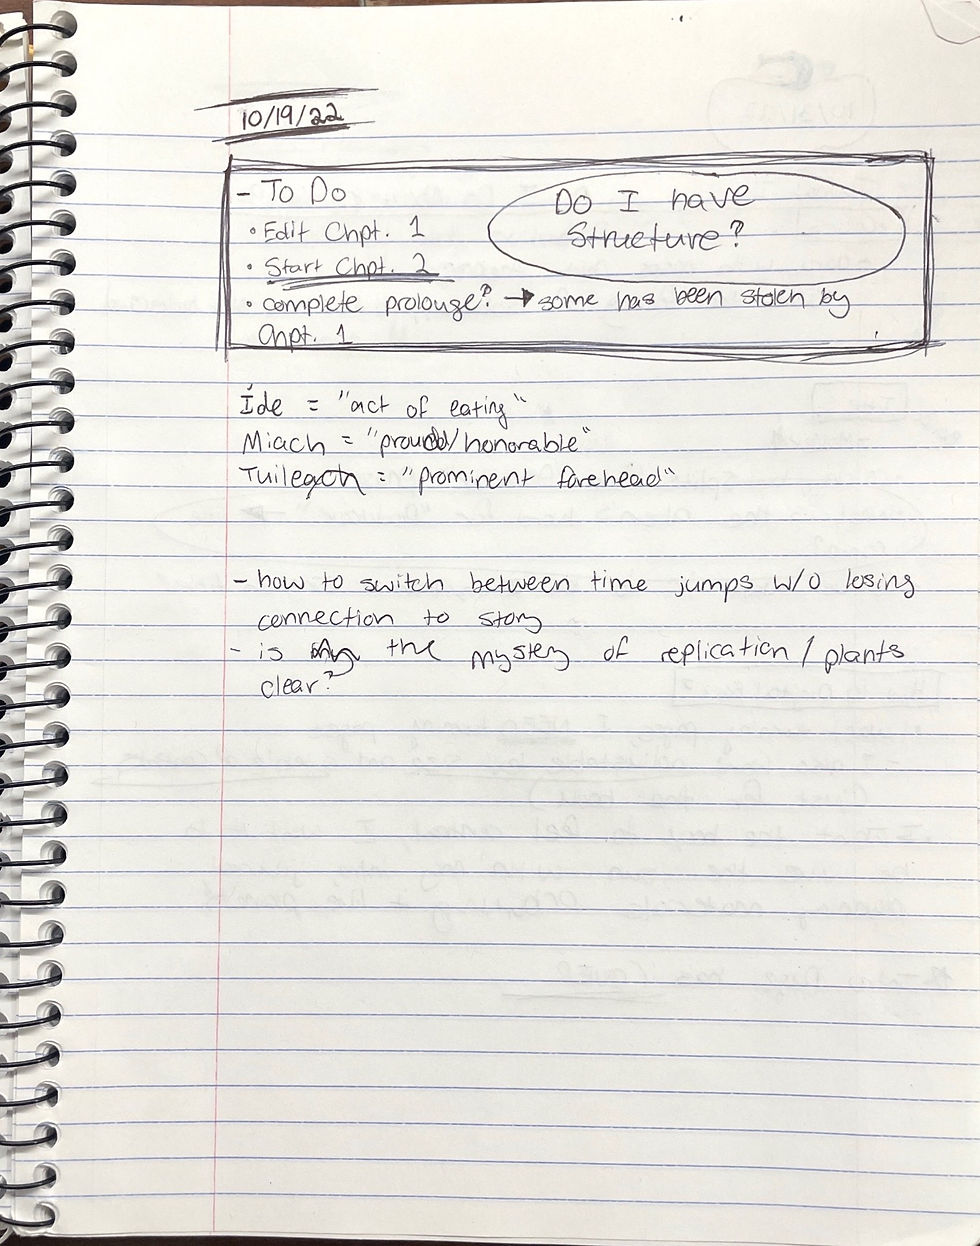 10/19/22
- To Do
Do I have
Structure?
• Edit Chpt. 1
• Start Chpt. 2
• complete prolouge? → some has been stolen by
Chpt. 1
Íde = "act of eating"
Miach = "proud/honorable"
Tuilegth = "prominent forehead"
- how to switch between time jumps w/o losing
connection to story
- is the mystery of replication / plants
clear?